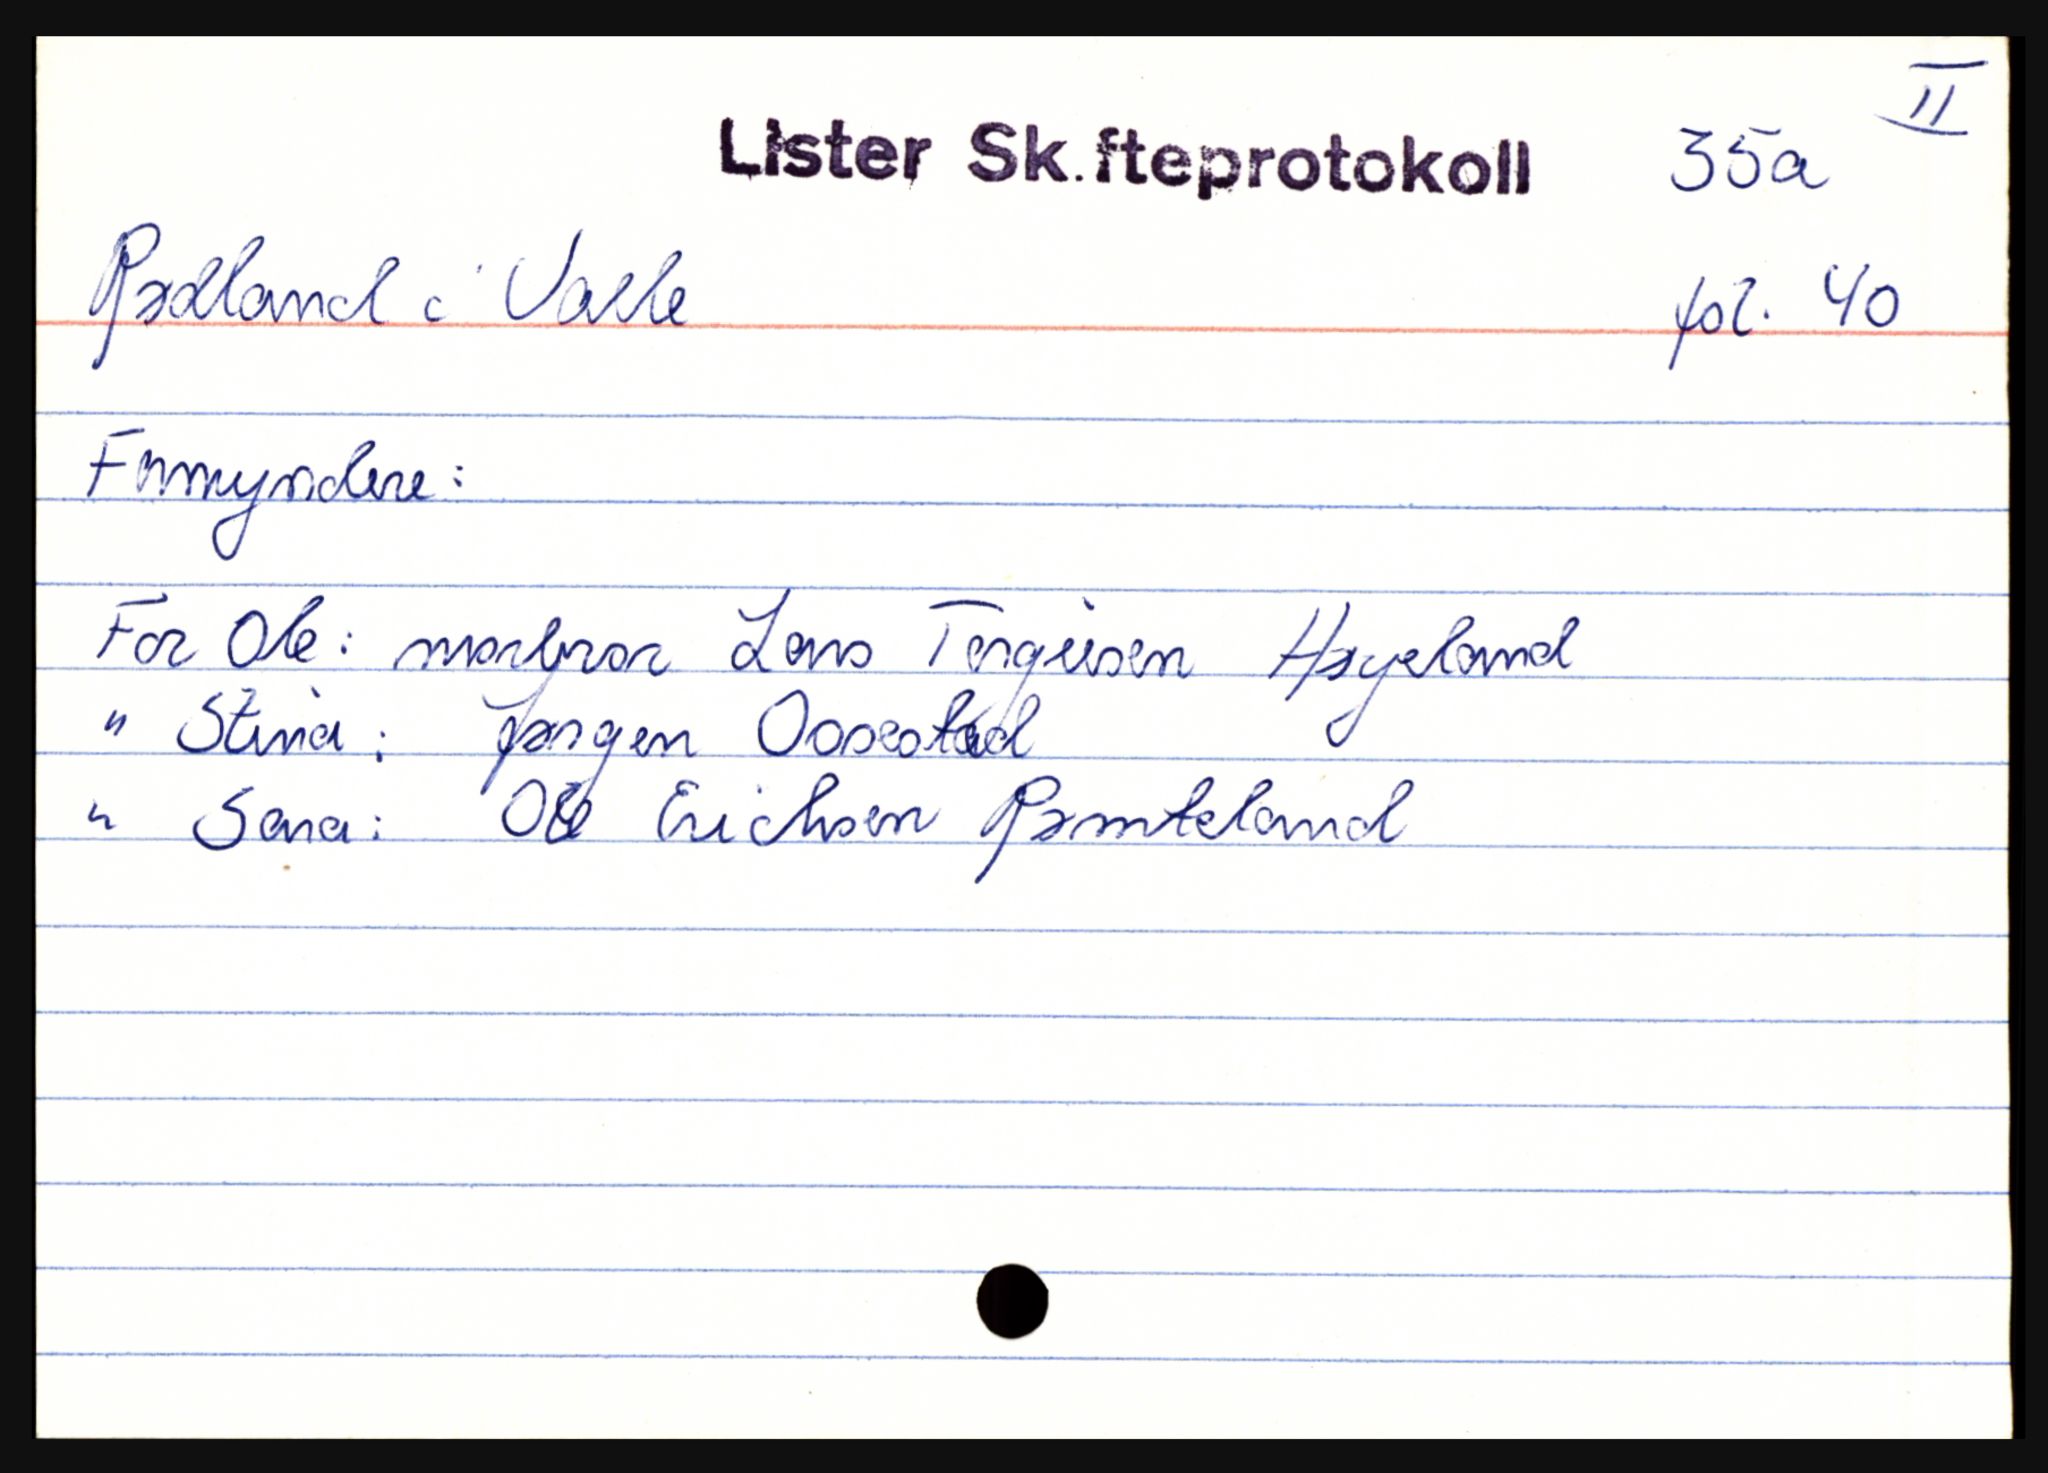 II
Lister Sk.fteprotokoll 35a
Rødland i Valle fol. 40
Formyndere:
For Ole: morbror Lars Tergiusen Høyeland
" Stina: Jørgen Oosestad
" Sara: Ole Erichsen Rømteland